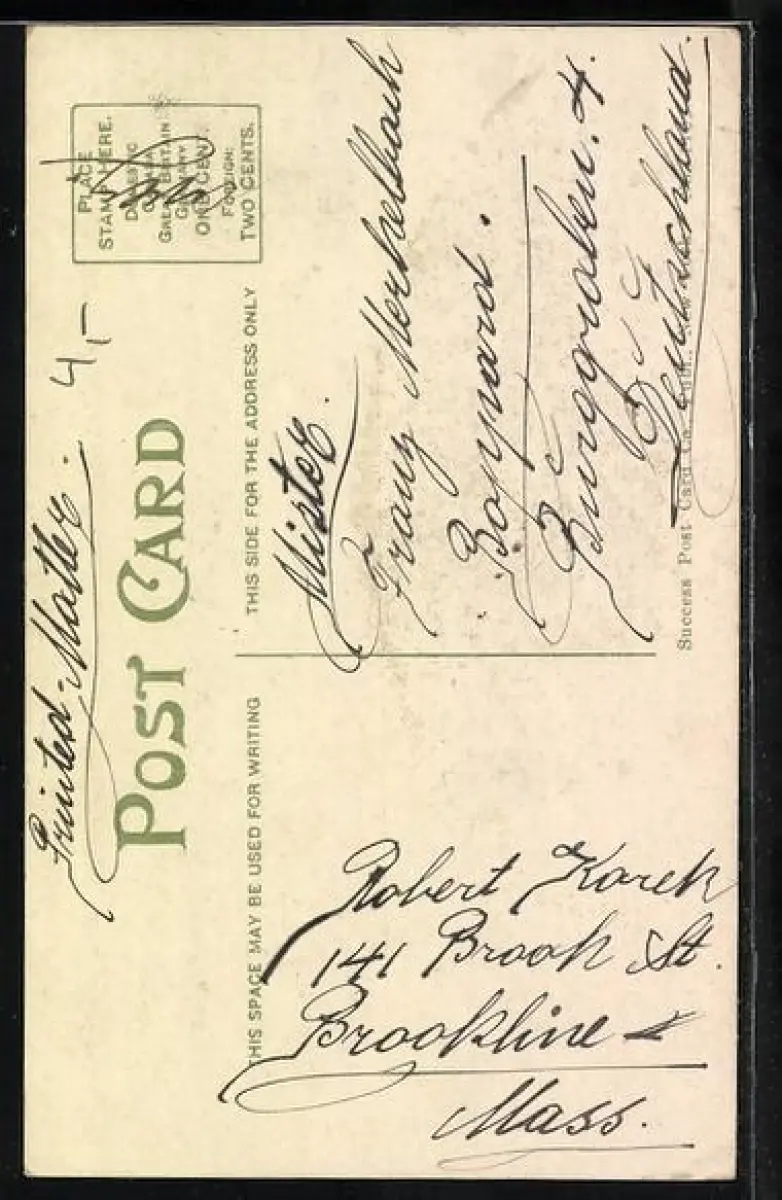 Printed-Matter. 4,-
POST CARD
PLACE
STAMP HERE.
DOMESTIC
CANADA
GREAT BRITAIN
GERMANY
ONE CENT.
FOREIGN:
TWO CENTS.
THIS SPACE MAY BE USED FOR WRITING
THIS SIDE FOR THE ADDRESS ONLY
Mister.
Franz Merkelbach
Boppard.
Burggraben. 4.
Deutschland.
Success Post Card Co.
Robert Korek
141 Brook St.
Brookline
Mass.